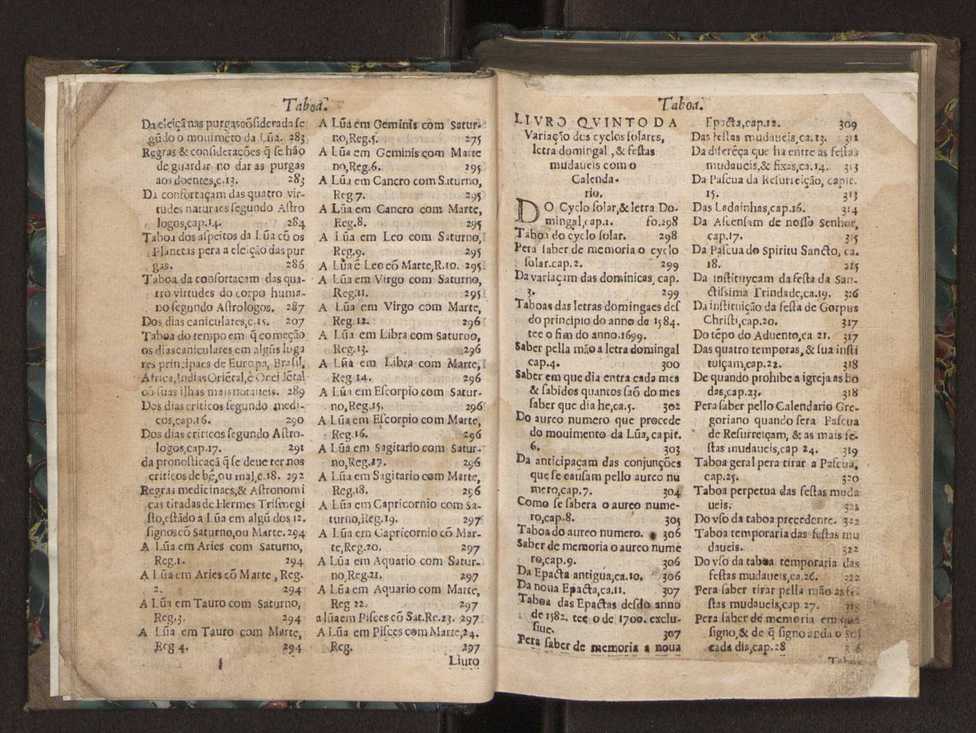 Taboa.
Da eleiçã nas purgas cõsiderada se
gũdo o mouimẽto da Lũa. 283
Regras & considerações q̃ se hão
de guardar no dar as purgas
aos doentes,c.13. 283
Da confortaçam das quatro vir-
tudes naturaes segundo Astro
logos,cap.14. 284
Taboa dos aspeitos da Lũa cõ os
Planetas pera a eleição das pur
gas. 286
Taboa da confortacam das qua-
tro virtudes do corpo huma-
no segundo Astrologos. 287
Dos dias caniculares,c.15. 207
Taboa do tempo em q̃ começão
os dias caniculares em algũs luga
res principaes de Europa, Brasil,
Africa,Indias Oriẽtal,& Ocidẽtal
cõ suas ilhas mais notaueis. 289
Dos dias criticos segundo medi-
cos,cap.16. 290
Dos dias criticos segundo Astro-
logos,cap.17. 291
da pronosticaçã q̃ se deue ter nos
criticos de bẽ,ou mal,c.18. 292
Regras medicinaes,& Astronomi
cas tiradas de Hermes Trismegi
sto,estãdo a Lũa em algũ dos 12.
signos cõ Saturno,ou Marte. 294
A Lũa em Aries com Saturno,
Reg.1. 294
A Lũa em Aries cõ Marte, Reg.
2. 294
A Lũa em Tauro com Saturno,
Reg.3. 294
A Lũa em Tauro com Marte,
Reg 4. 294
A Lũa em Geminis com Satur-
no,Reg.5. 275
A Lũa em Geminis com Marte
no,Reg.6. 295
A Lũa em Cancro com Saturno,
Reg.7. 295
A Lũa em Cancro com Marte,
Reg.8. 295
A Lũa em Leo com Saturno,
Reg.9. 295
A Lũa ẽ Leo cõ Marte,R.10. 295
A Lũa em Virgo com Saturno,
Reg.11. 295
A Lũa em Virgo com Marte,
Reg.12. 296
A Lũa em Libra com Saturno,
Reg.13. 296
A Lũa em Libra com Marte,
Reg.14. 296
A Lũa em Escorpio com Satur-
no,Reg.15. 296
A Lũa em Escorpio com Marte,
Reg.16. 296
A Lũa em Sagitario com Satur-
no,Reg.17. 296
A Lũa em Sagitario com Marte,
Reg.18. 296
A Lũa em Capricornio com Sa-
turno,Reg.19. 297
A Lũa em Capricornio cõ Mar-
te,Reg.20. 297
A Lũa em Aquario com Satur-
no,Reg.21. 297
A Lũa em Aquario com Marte,
Reg 22. 297
a lũa em Pisces cõ Sat.Re.23. 297
A Lũa em Pisces com Marte,24.
Reg. 297
Liuro
Taboa.
LIVRO QVINTO DA
Variação dos cyclos solares,
letra domingal, & festas
mudaueis com o
Calenda-
rio.
DO Cyclo solar,& letra Do-
mingal,cap.1. fo.298
Taboa do cyclo solar. 298
Pera saber de memoria o cyclo
solar.cap.2. 299
Da variaçam das dominicas, cap.
3. 299
Taboas das letras domingaes des
do principio do anno de 1584.
tee o fim do anno.1699.
Saber pella mão a letra domingal
cap.4. 300
Saber em que dia entra cada mes
& sabidos quantos são do mes
saber que dia he,ca.5. 302
Do aureo numero que procede
do mouimento da Lũa,capit.
6. 303
Da anticipaçam das conjunções
que se causam pello aureo nu
mero,cap.7. 304
Como se sabera o aureo nume-
ro,cap.8. 305
Taboa do aureo numero. 306
Saber de memoria o aureo nume
ro,cap.9. 306
Da Epacta antigua,ca.10. 306
Da noua Epacta,ca.11. 307
Taboa das Epactas desdo anno
de 1582. tee o de 1700. exclu-
siue. 307
Pera saber de memoria a noua
Epacta,cap.12. 309
Das festas mudaueis,ca.13. 312
Da diferẽça que ha entre as festas
mudaueis,& fixas,ca.14. 313
Da Pascua da Resurreição, capit.
15. 313
Das Ladainhas,cap.16. 314
Da Ascensam de nosso Senhor,
cap.17. 315
Da Pascua do Spiritu Sancto, ca.
18. 315
Da instituyçam da festa da San-
ctissima Trindade,ca.19. 316
Da instituição da festa de Corpus
Christi,cap.20. 317
Do tẽpo do Aduento,ca 21. 317
Das quatro temporas,& sua insti
tuiçam,cap.22. 318
De quando prohibe a igreja as bo
das,cap.23. 318
Pera saber pello Calendario Gre-
goriano quando sera Pascua
de Resurreiçam, & as mais fe-
stas mudaueis,cap 24. 319
Taboa geral pera tirar a Pascua,
cap.25. 320
Taboa perpetua das festas muda
ueis. 321
Do vso da taboa precedente. 322
Taboa temporaria das festas mu
daueis. 322
Do vso da taboa temporaria das
festas mudaueis,ca.26.
Pera saber tirar pella mão as fe-
stas mudaueis,cap 27.
Pera saber de memoria em que
signo,& de q̃ signo anda o Sol
cada dia,cap.28